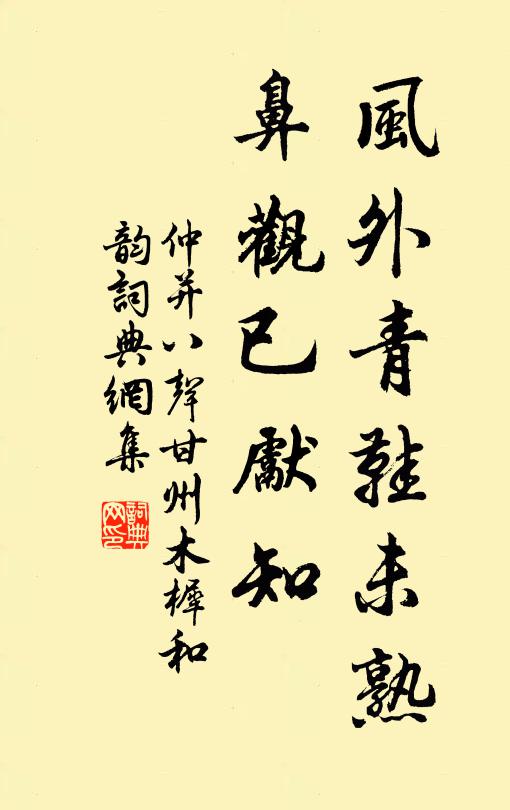 風外青鞋未熟
鼻觀已獻知
仲并八聲甘州木樨和
韵詞典網集
詞典网印